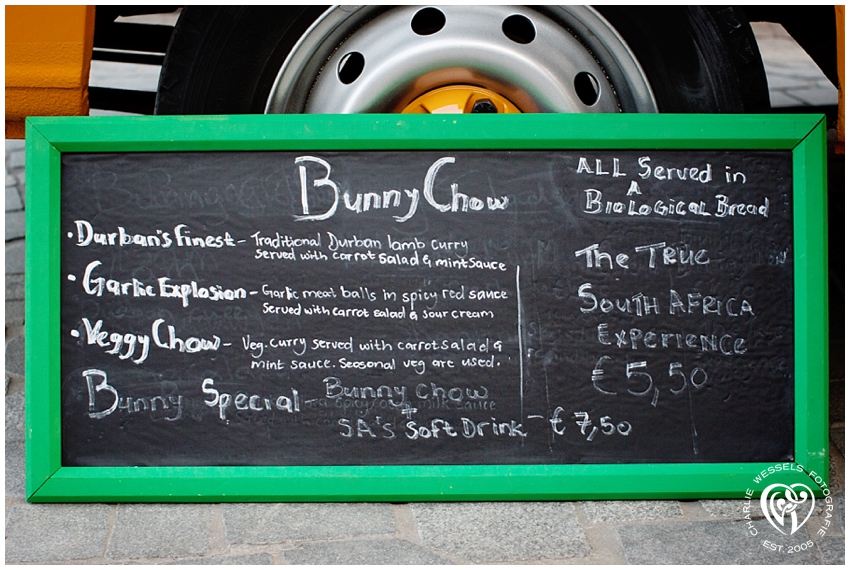 Bunny Chow
• Durban's finest - Traditional Durban lamb curry
served with carrot salad & mint sauce
• Garlic Explosion - Garlic meat balls in spicy red sauce
Served with carrot salad & sour cream
• Veggy Chow - Veg. curry served with carrot salad &
mint sauce. Seasonal veg are used.
Bunny Special - Bunny chow
+
SA's Soft Drink - € 7,50
ALL Served in
A
Biological Bread
The True
South Africa
Experience
€ 5,50
CHARLIE WESSELS FOTOGRAFIE
EST. 2005